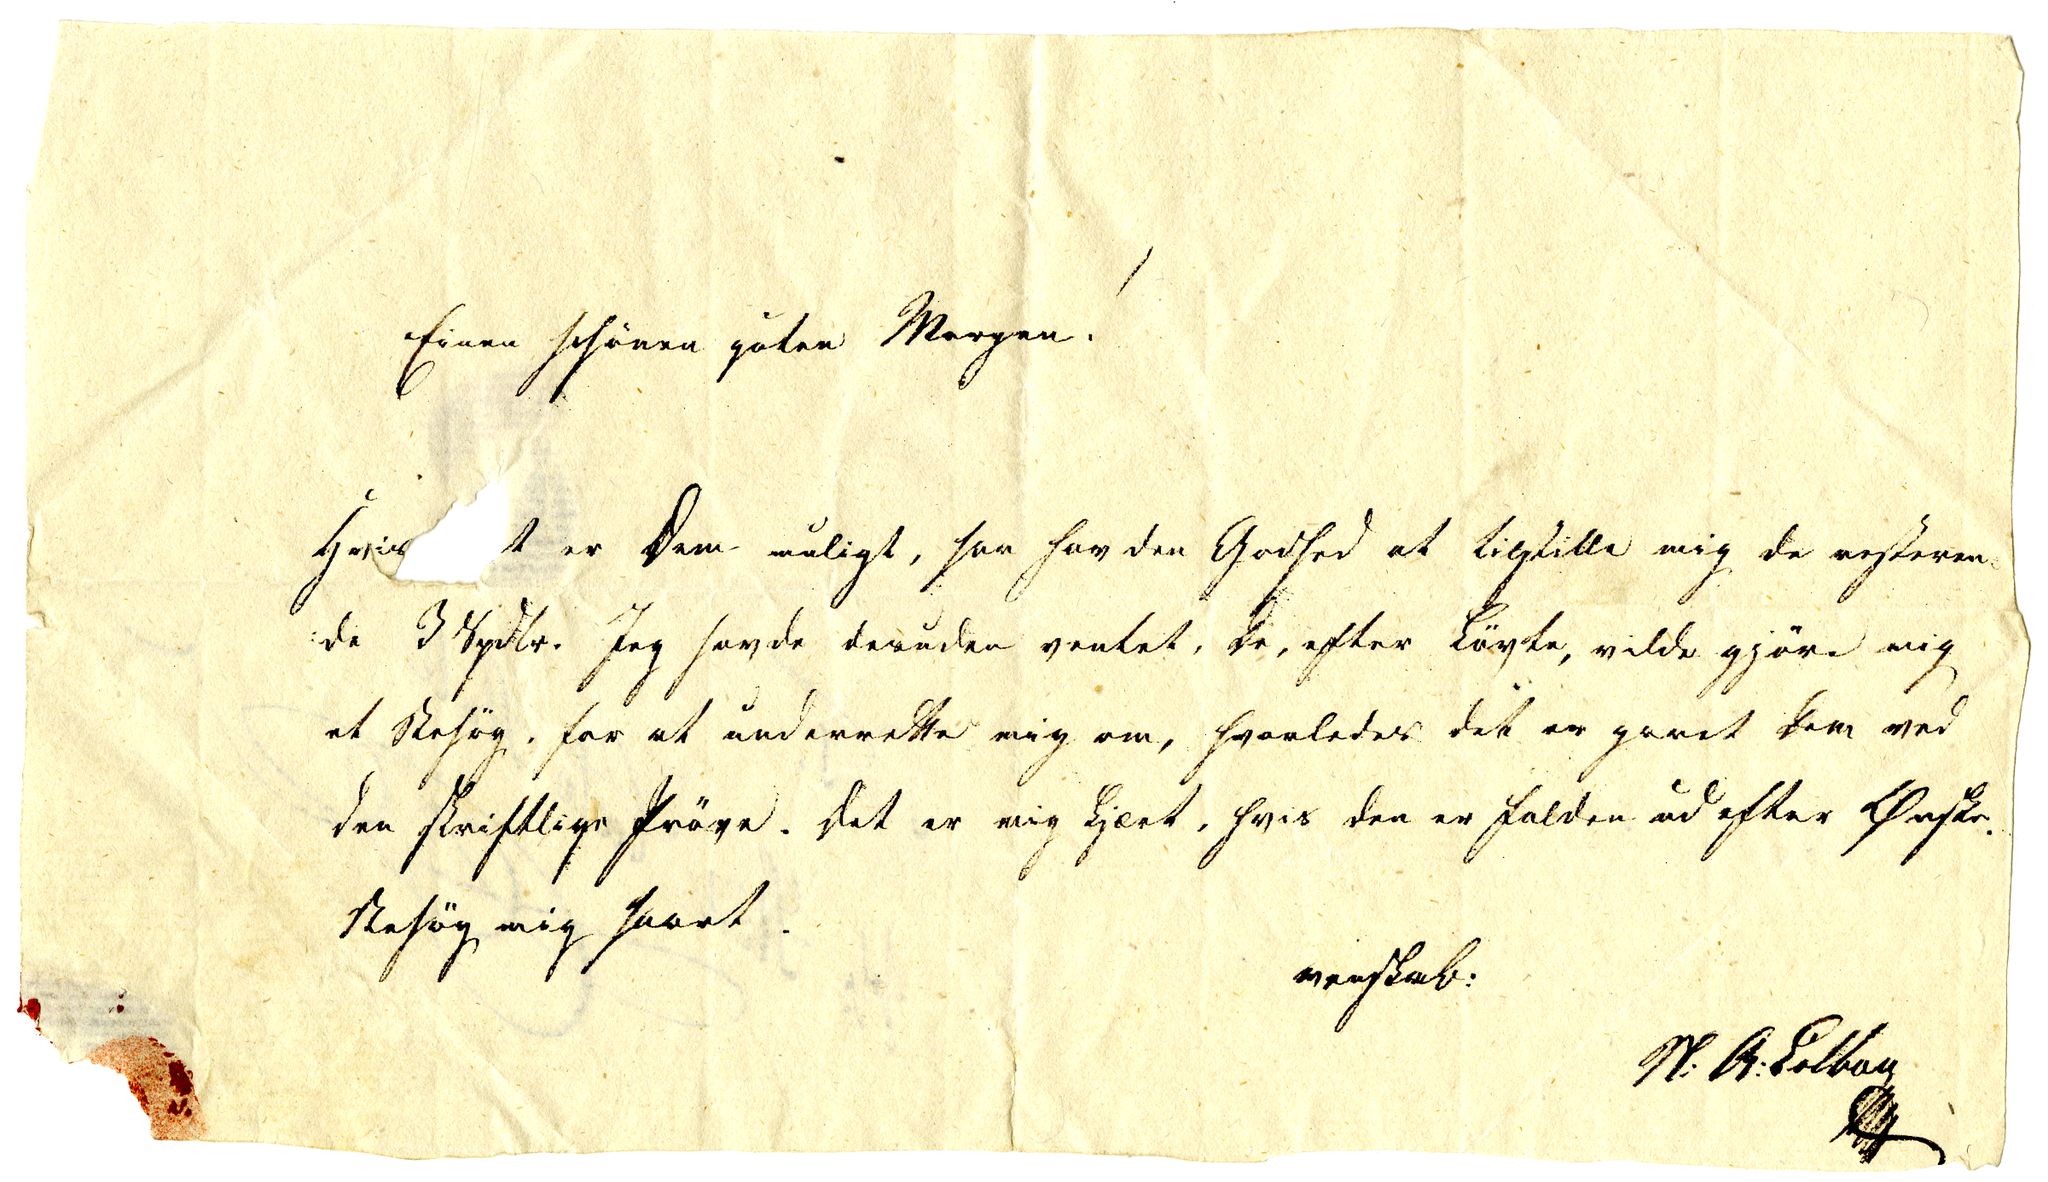 Einen schönen guten Morgen!
Hvis t er Dem muligt, saa hav den Godhed at tilstille mig de resteren-
:de 3 Spdlr. Jeg havde desuden ventet, De, efter Løvte, vilde gjöre mig
et Besög, for at underrette mig om, hvorledes det er gaaet Dem ved
den skriftlige Pröve. Det er mig kjært, hvis den er falden ud efter Ønske.
Besög mig snart.
venskab:
N. A: